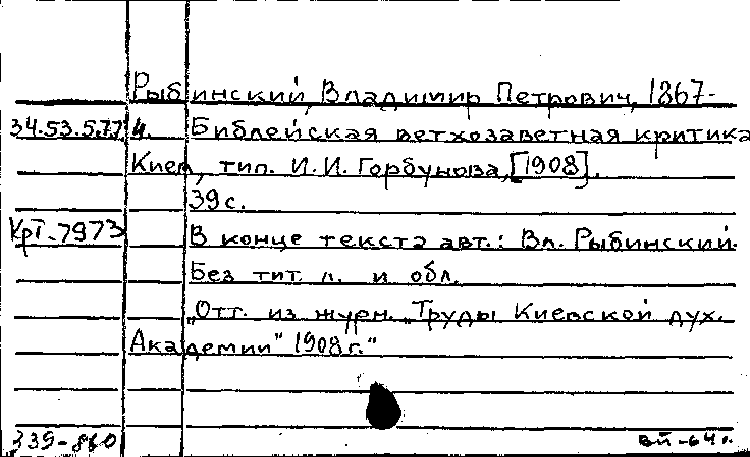 Рыбинский, Владимир Петрович, 1867-
34.53.5.77 И. Библейская ветхозаветная критика
Киев, тип. И.И. Горбунова, [1908].
39 с.
Крт-7973 В конце текста авт.: Вл. Рыбинский.
Без тит. л. и обл.
„Отт. из журн. „Труды Киевской дух.
Академии" 1908 г."
339-860 вп-64 г.